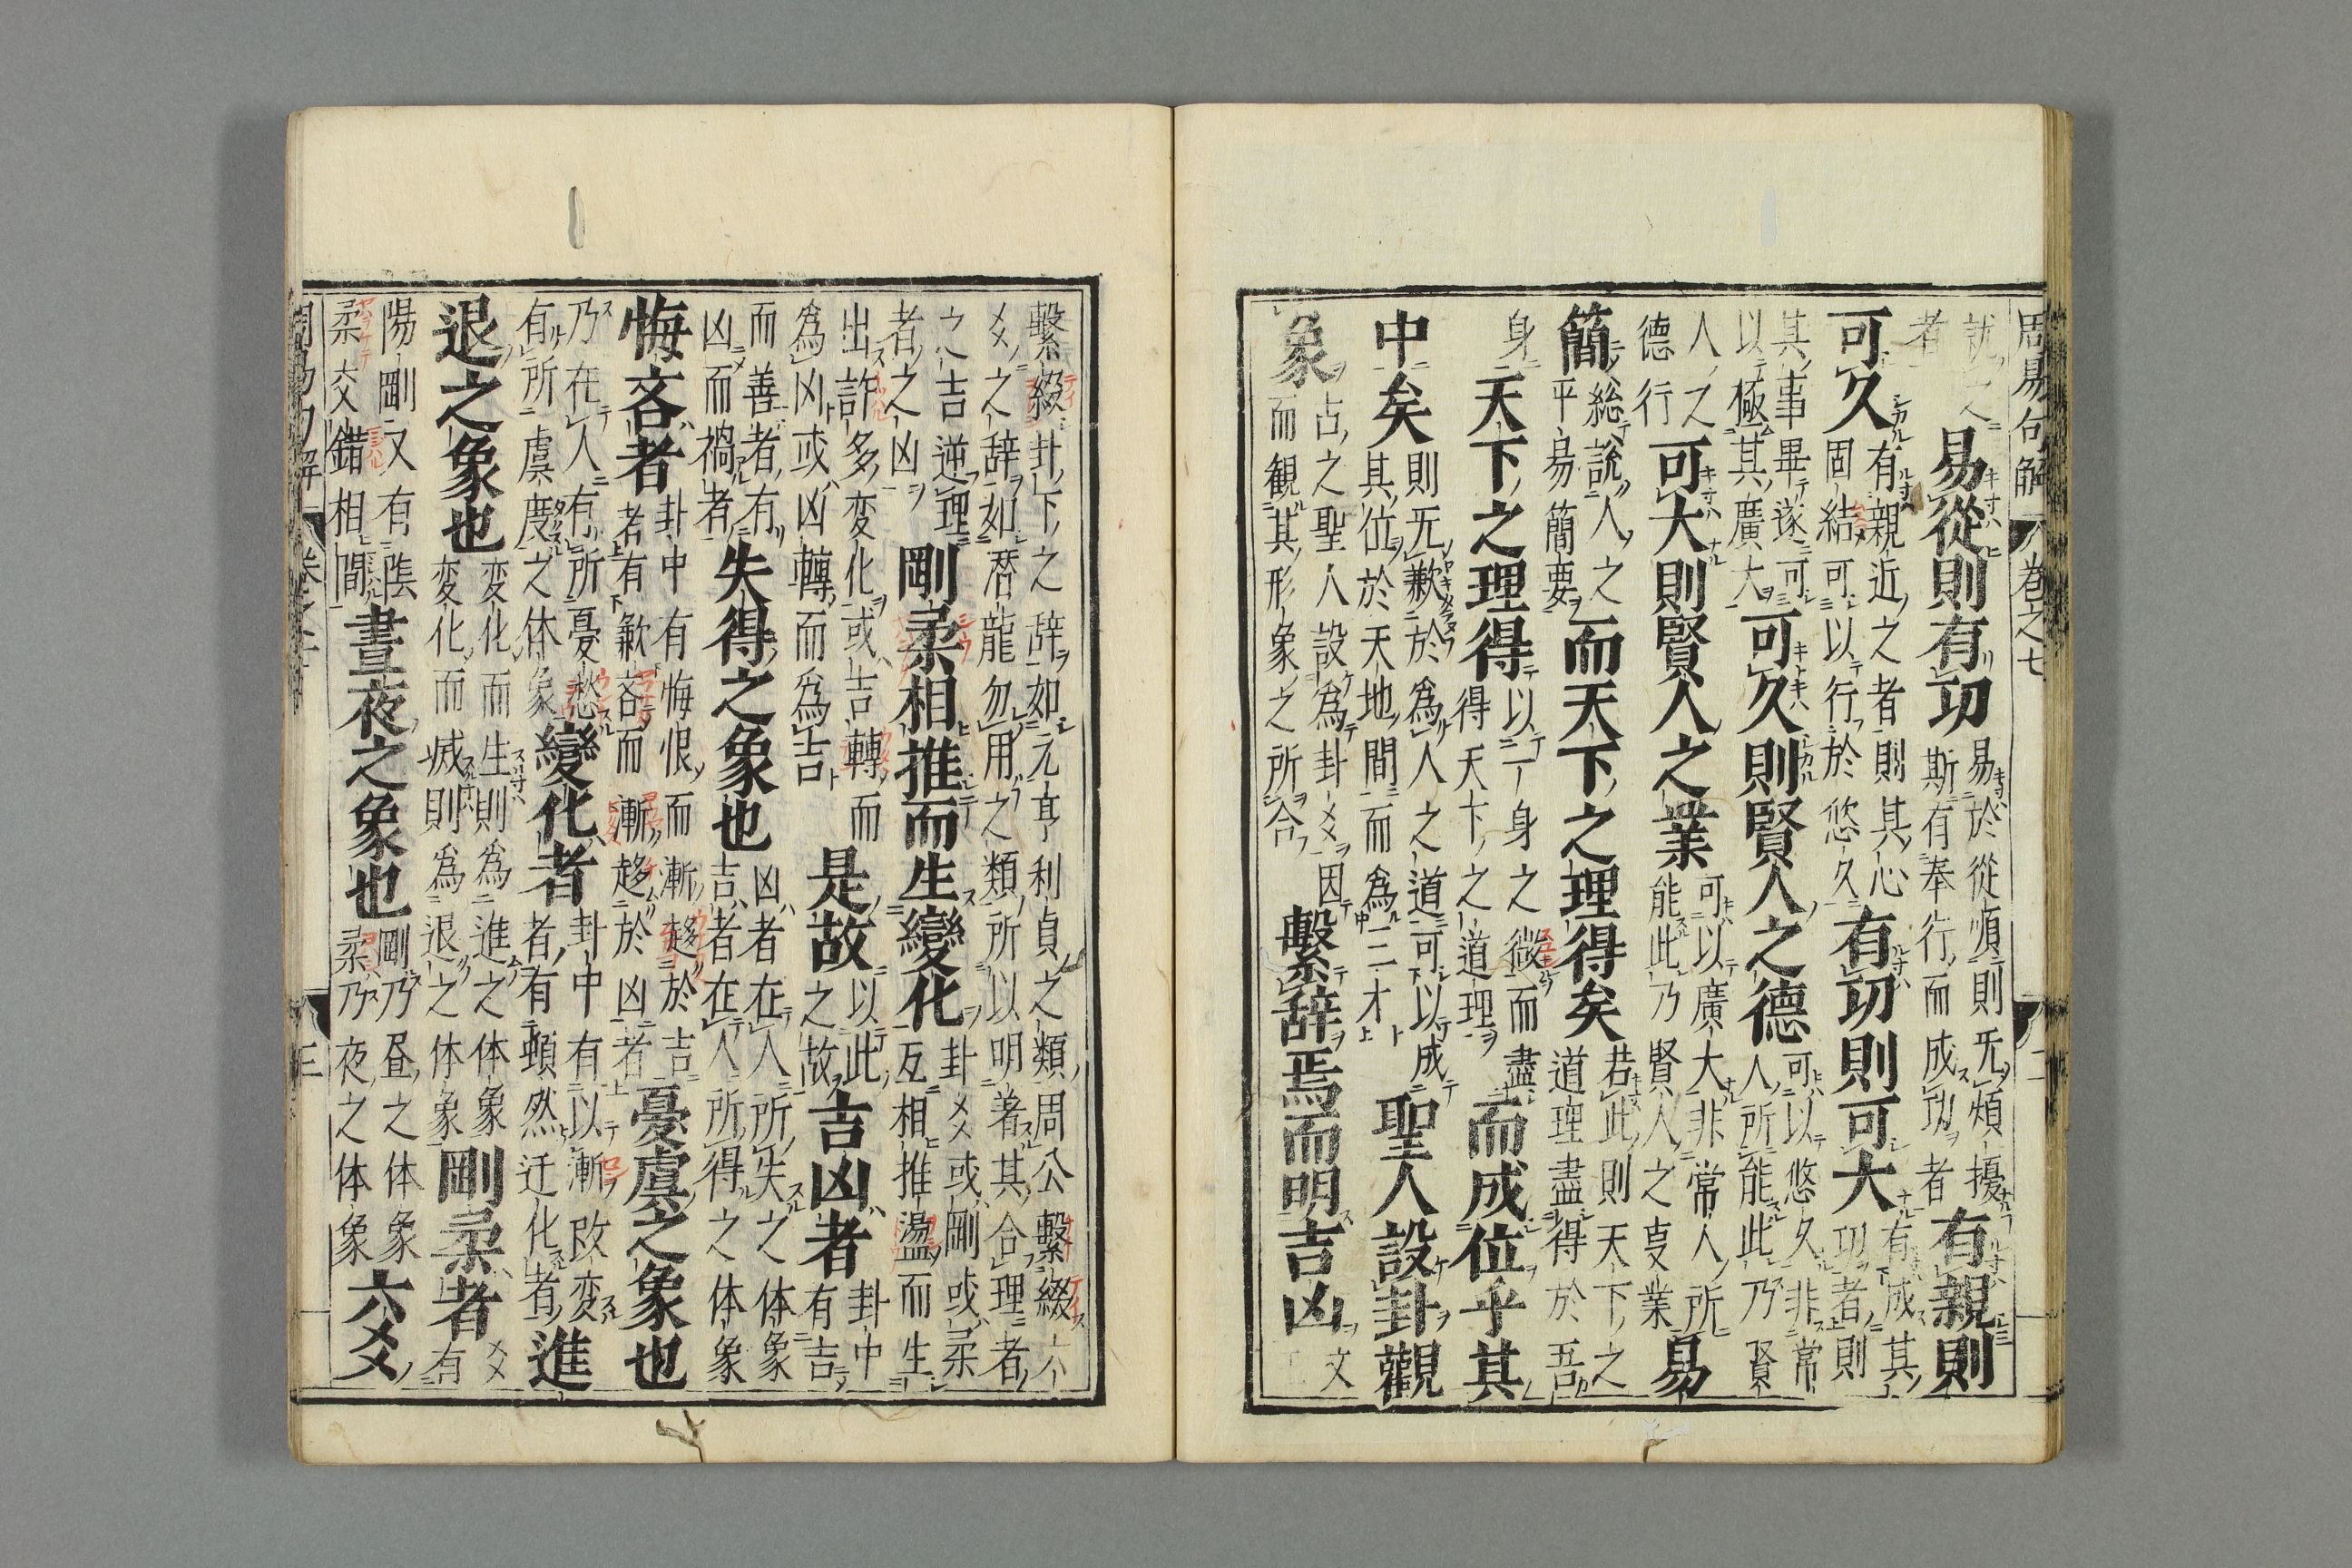 周易句解 卷之七 二
說之者易從則有功易於從順則旡煩擾斯有奉行而成功者有親則
可久有親近之者則其心固結可以行於悠久有功則可大有成其功者則
其事畢遂可以極其廣大可久則賢人之德可以悠久非常人所能此乃賢
人之德行可大則賢人之業可以廣大非常人所能此乃賢人之事業易
簡總說人之平易簡要而天下之理得矣若此則天下之道理盡得於吾
身天下之理得以一身之微而盡得天下之道理而成位乎其
中矣則旡歉於爲人之道可以成其位於天地間而爲三才聖人設卦觀
象占之聖人設爲卦爻因而観其形象之所合繫辞焉而明吉凶文
繫綴卦下之辞如元亨利貞之類周公繫綴六
爻之辞如潜龍勿用之類所以明著其合理者
之吉逆理者之凶剛柔相推而生變化卦爻或剛或柔互相推盪而生
出許多変化或吉轉而爲凶或凶轉而爲吉是故以此之故吉凶者卦中有吉
而善者有凶而禍者失得之象也凶者在人所失之体象吉者在人所得之体象
悔吝者卦中有悔恨而漸趍於吉者有歉吝而漸趍於凶者憂虞之象也
乃在人有所憂愁有所虞度之体象變化者卦中有以漸改変者有頓然迁化者進
退之象也変化而生則爲進之体象変化而滅則爲退之体象剛柔者爻有
陽剛又有陰柔交錯相間晝夜之象也剛乃昼之体象柔乃夜之体象六爻
周易句解 卷之七 三